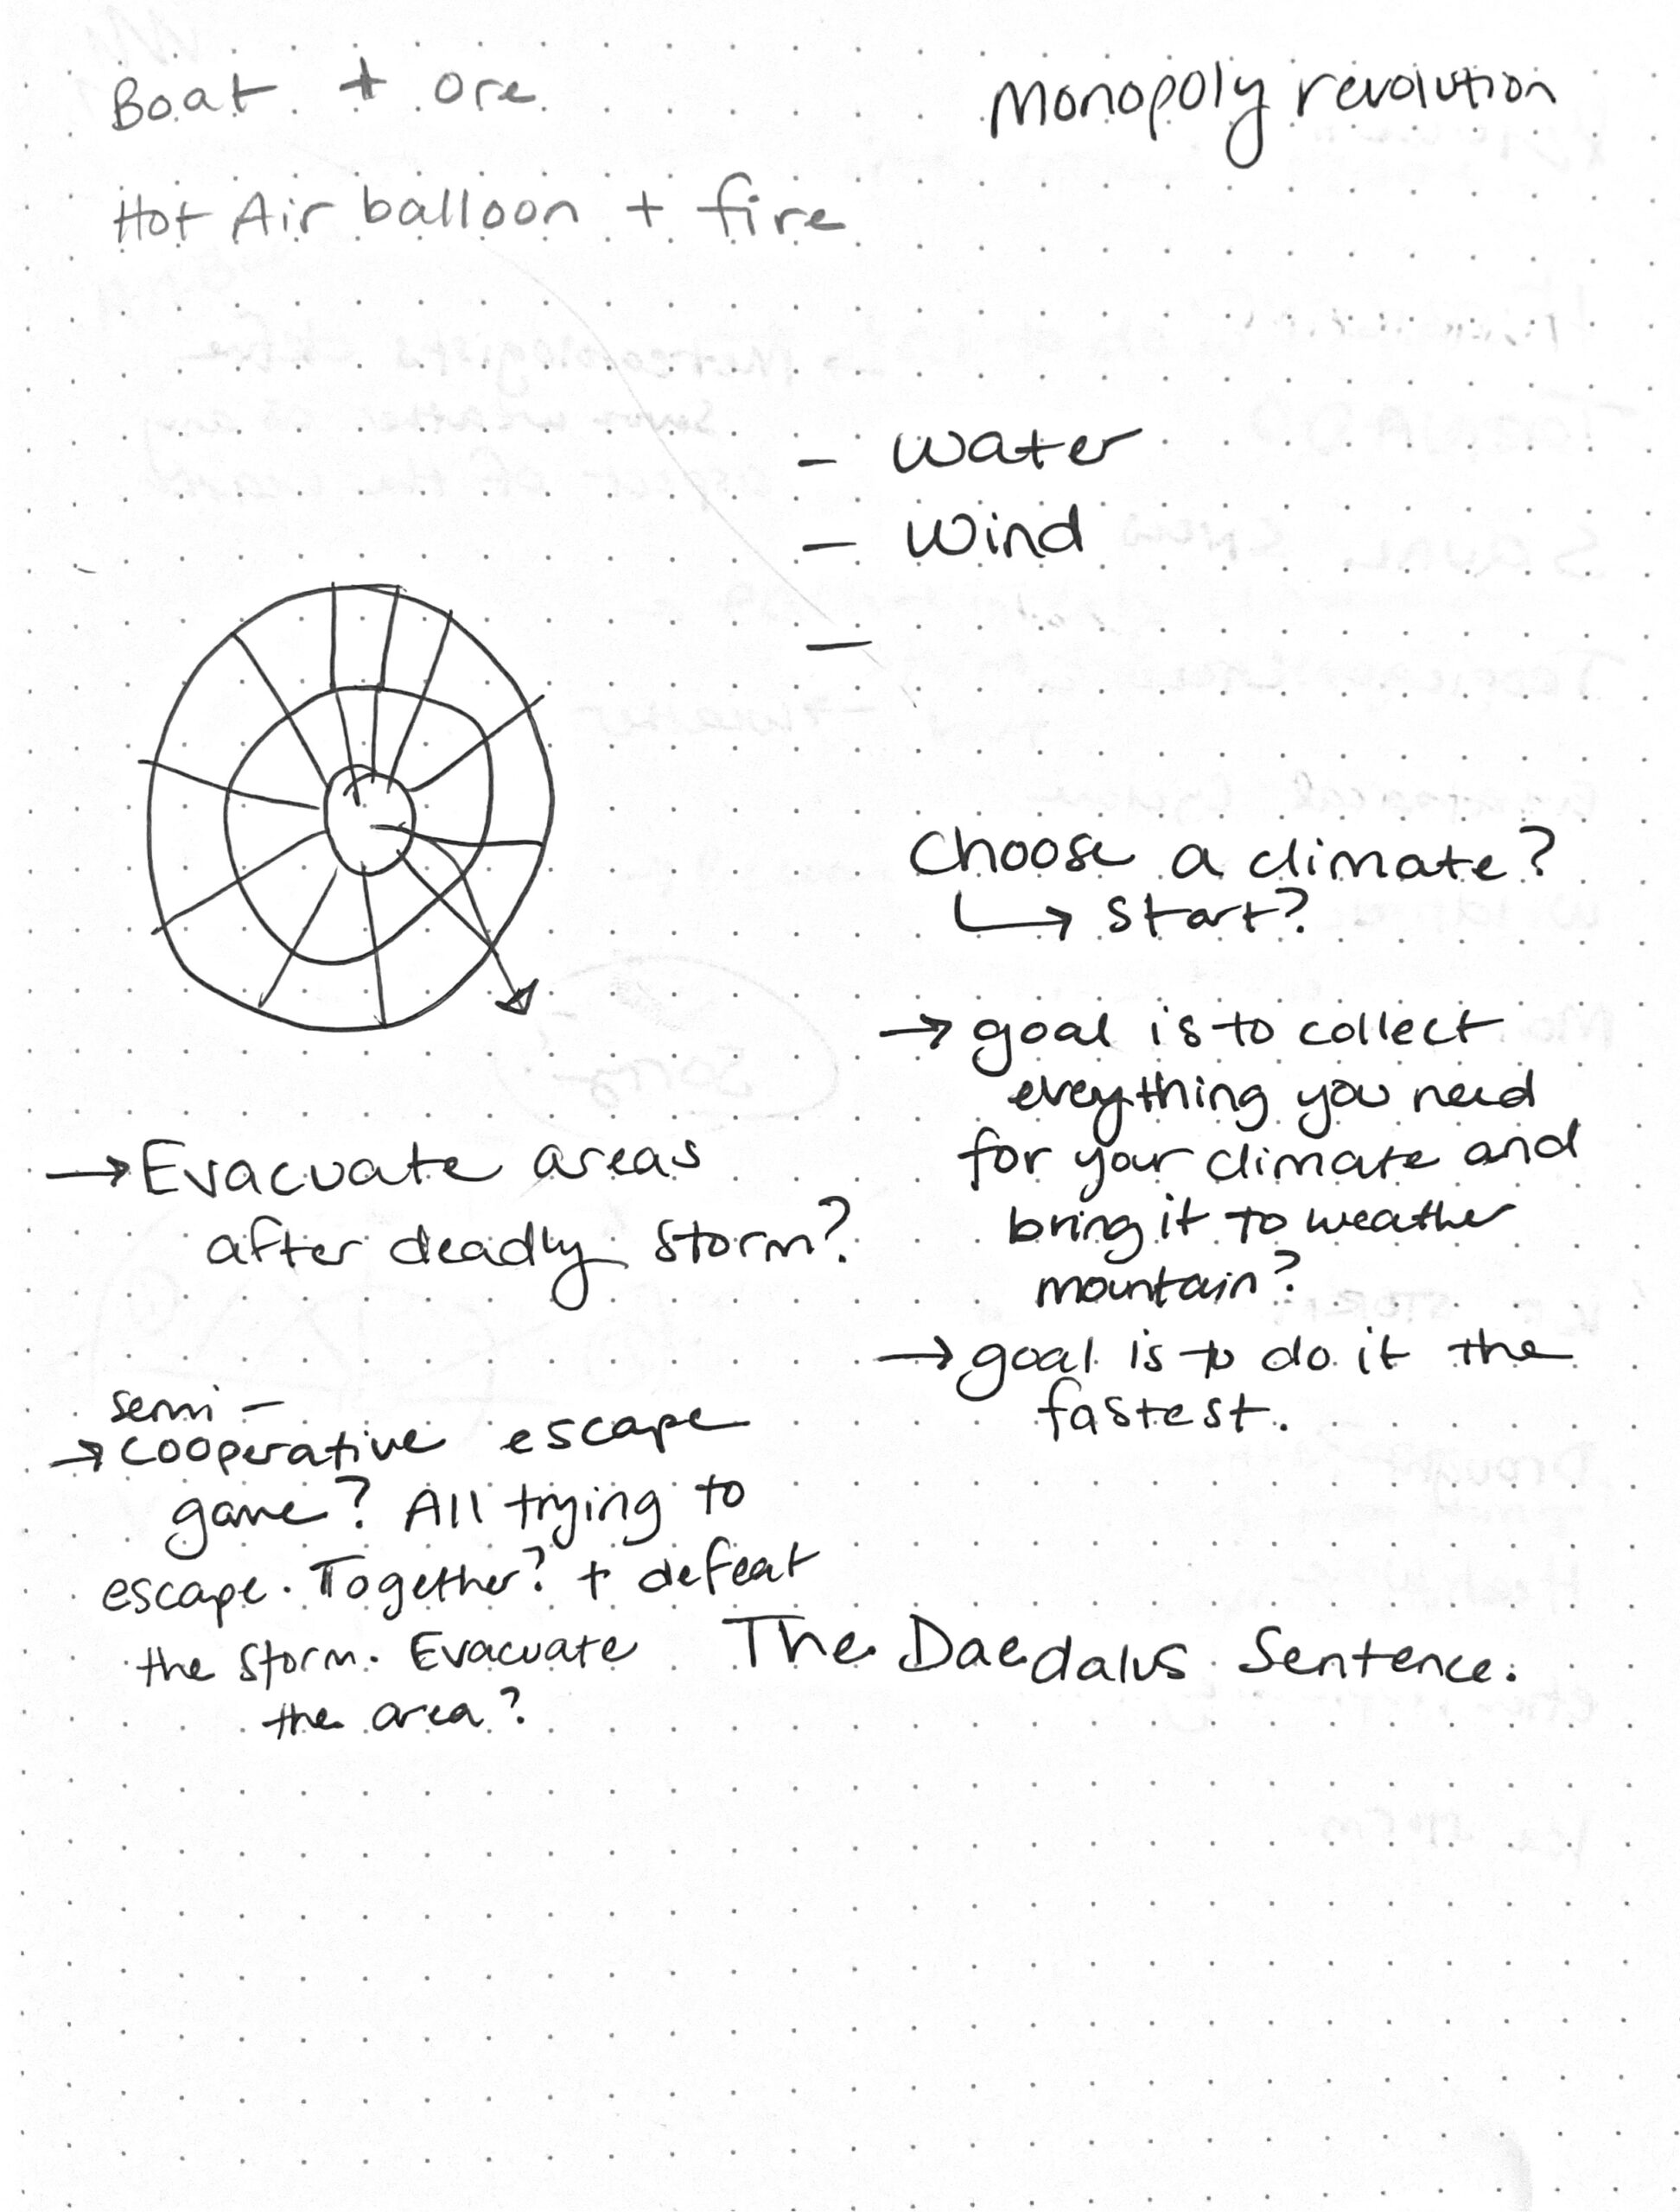 Boat + ore
Monopoly revolution
Hot Air balloon + fire
- water
- wind
-
Choose a climate?
↳ start?
→ goal is to collect
eveything you need
for your climate and
bring it to weather
mountain?
→ goal is to do it the
fastest.
→ Evacuate areas
after deadly storm?
semi-
→ cooperative escape
game? All trying to
escape. Together? + defeat
the storm. Evacuate
the area?
The Daedalus Sentence.